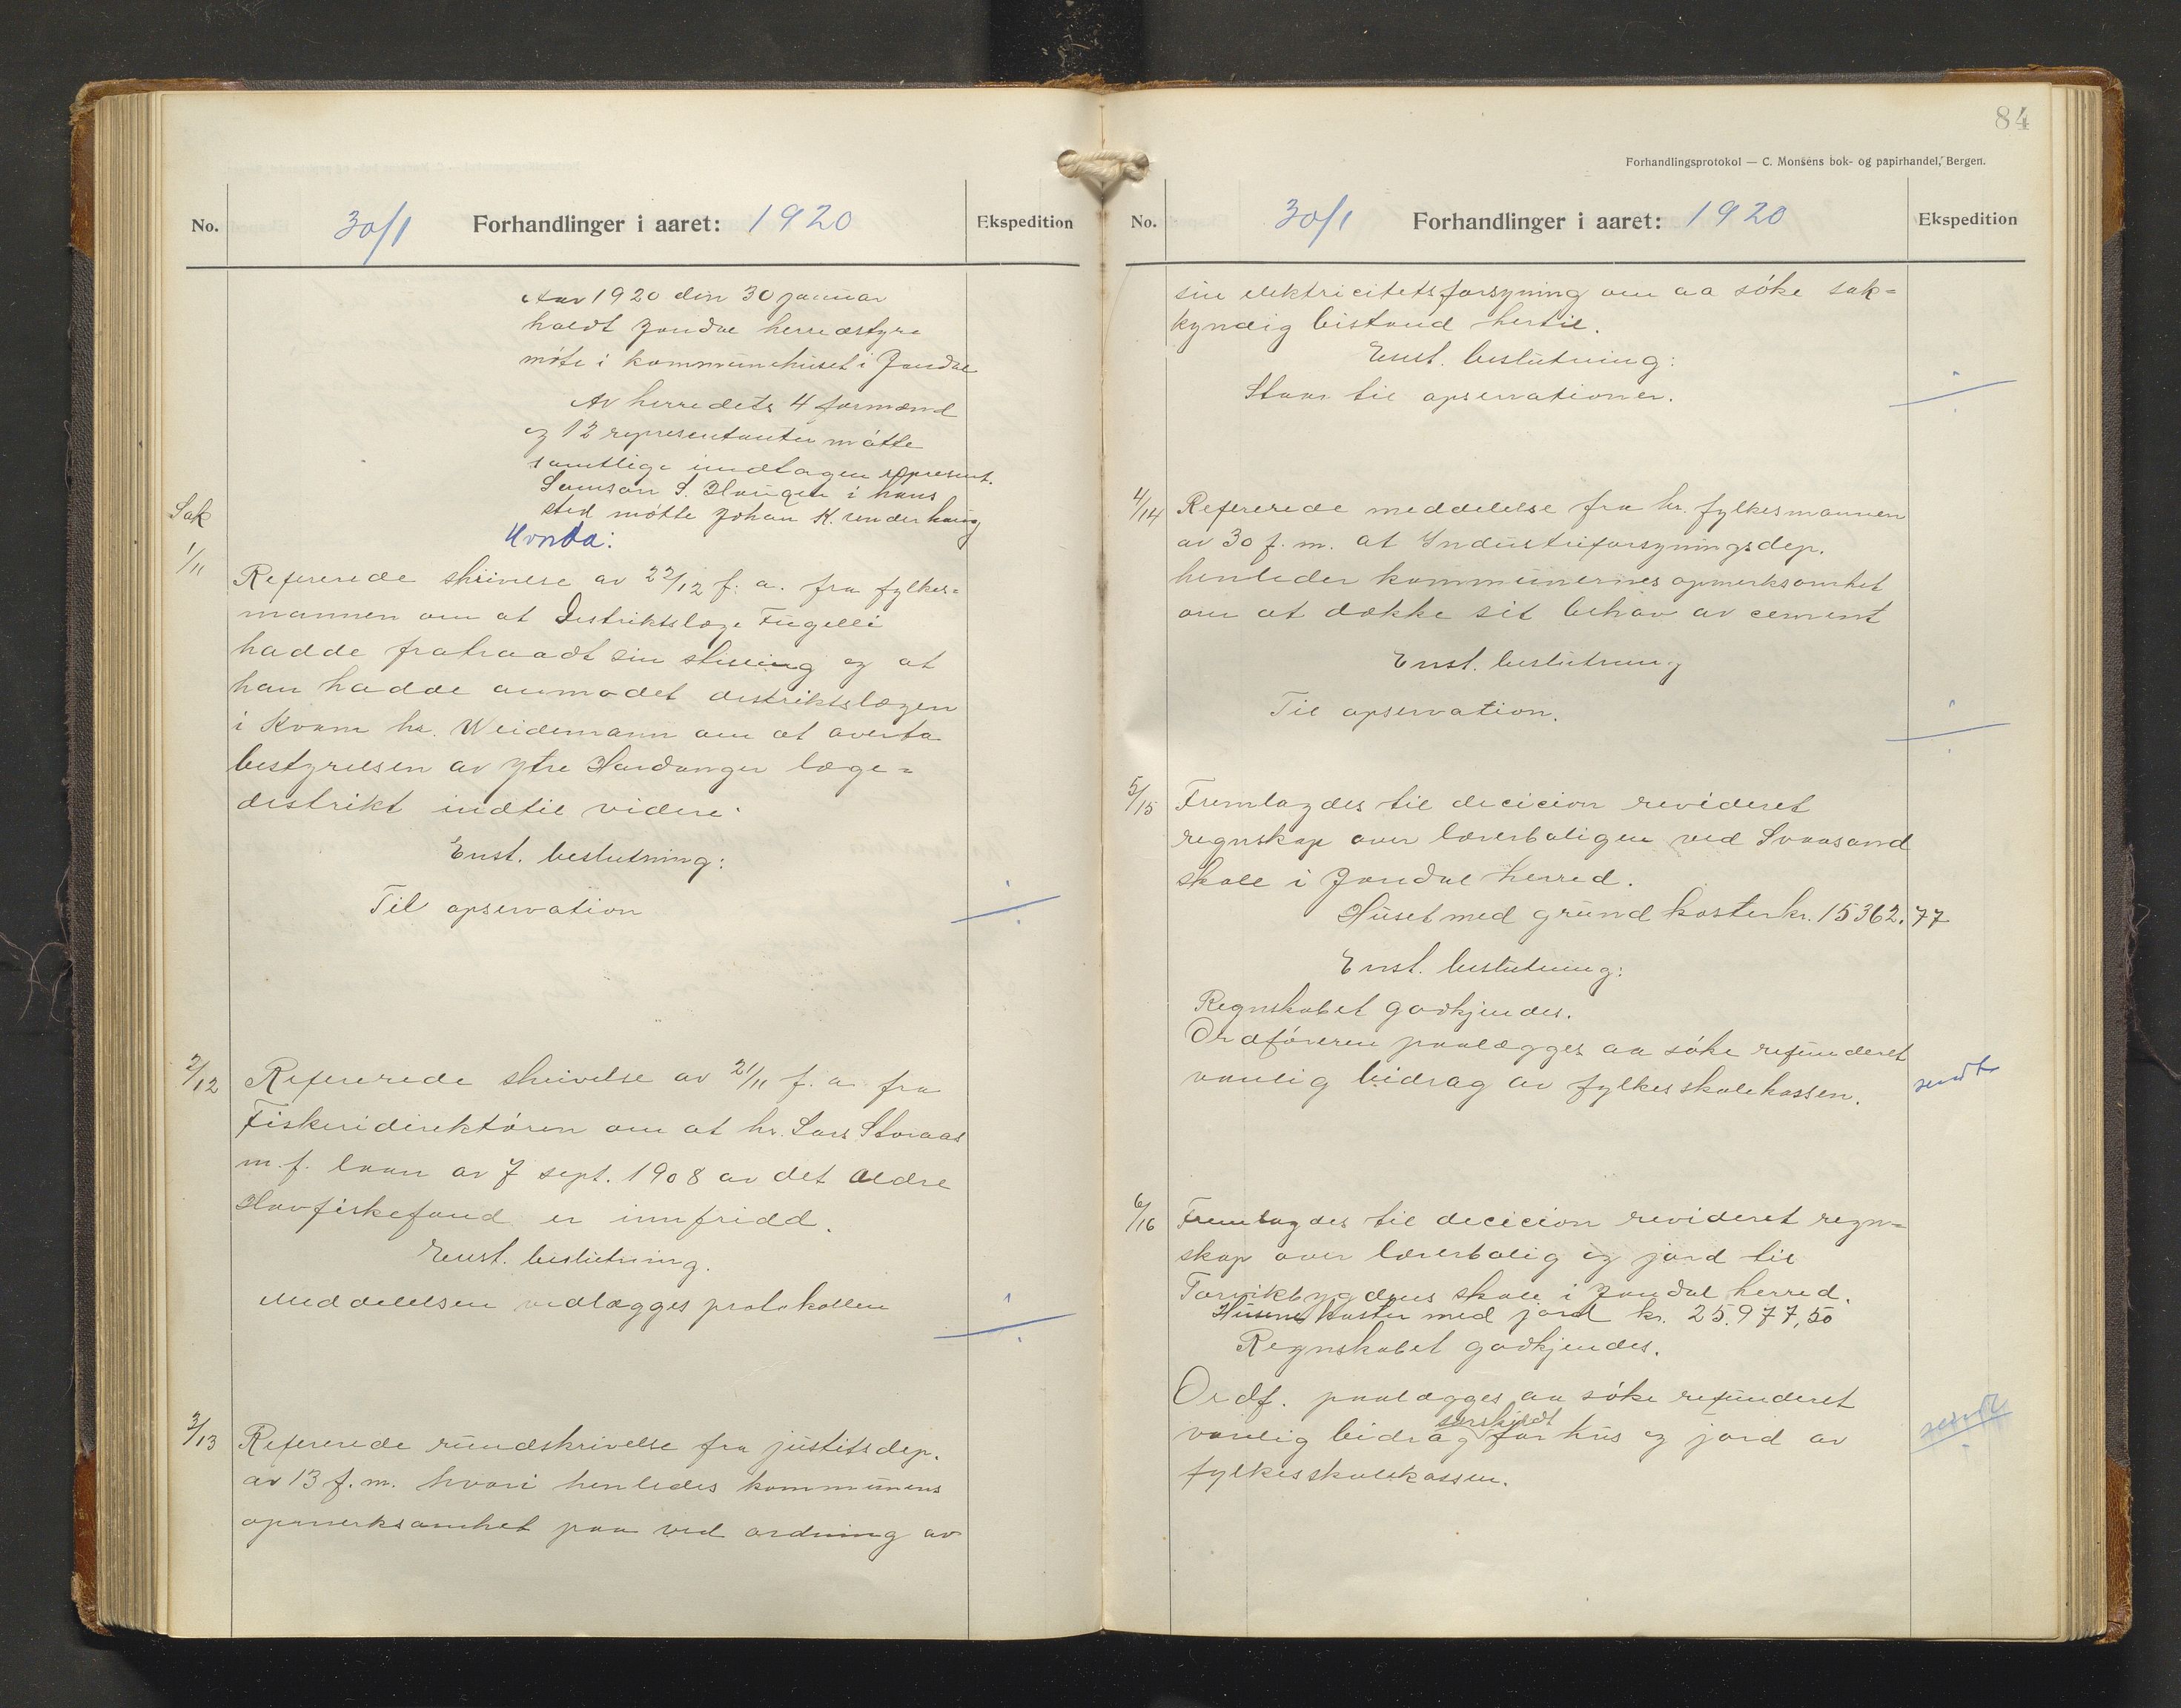 No.
30/1 Forhandlinger i aaret: 1920
Ekspedition
Aar 1920 den 30 januar
holdt Jondal herredstyre
møte i kommunehuset i Jondal
Av herredets 4 formænd
og 12 representanter møtte
samtlige undtagen represent.
Samson S. Haugen i hans
sted møtte Johan K. Underhaug
Sak
1/11
Refererede skrivelse av 22/12 f. a. fra fylkes=
mannen om at Distriktslæge Fugelli
hadde fratraadt sin stilling og at
han hadde anmodet distriktslægen
i Kvam hr. Weidemann om at overta
bestyrelsen av Ytre Hardanger læge=
distrikt indtil videre.
Enst. beslutning:
Til opservation
2/12
Refererede skrivelse av 21/11 f. a. fra
Fiskeridirektøren om at hr. Lars Storaas
m. f. laan av 7 sept. 1908 av det ældre
Havfiskefond er innfridd.
Enst. beslutning.
Meddelelsen vedlægges protokollen
3/13
Refererede rundskrivelse fra justitsdep.
av 13 f. m. hvori henledes kommunens
opmerksomhet paa ved ordning av
84
Forhandlingsprotokol — C. Monsens bok- og papirhandel, Bergen.
No.
30/1 Forhandlinger i aaret: 1920
Ekspedition
sin elektricitetsforsyning om aa søke sak=
kyndig bistand hertil.
Enst. beslutning:
Staar til opservationer.
4/14
Refererede meddelelse fra hr. fylkesmannen
av 30 f. m. at Industriforsyningsdep.
henleder kommunernes opmerksomhet
om at dække sit behov av cement
Enst. beslutning
Til opservation.
5/15
Fremlagdes til decicion revideret
regnskap over lærerboligen ved Svaasand
skole i Jondal herred.
Huset med grund koster kr. 15362.77
Enst. beslutning:
Regnskabet godkjendes.
Ordføreren paalægges aa søke refunderet
vanlig bidrag av fylkesskolekassen.
sendt
6/16
Fremlagdes til decicion revideret regn=
skap over lærerbolig og jord til
Torvikbygdens skole i Jondal herred.
Husene koster med jord kr. 25.977,50
Regnskabet godkjendes.
Ordf. paalægges aa søke refunderet
særskildt
vanlig bidrag for hus og jord av
fylkesskolekassen.
sendt